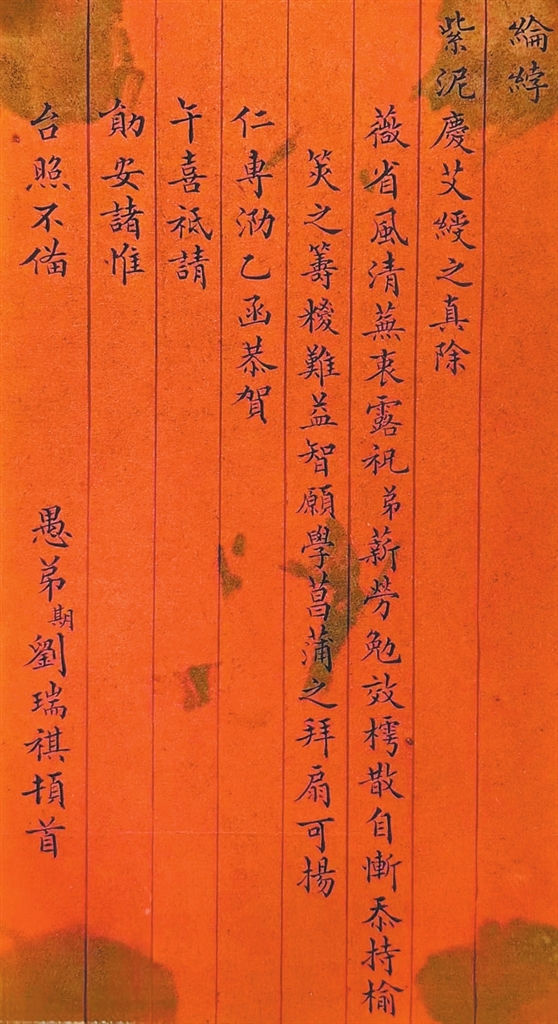 綸綍
紫泥慶艾綬之真除
薇省風清蕪衷露祝弟薪勞勉效樗散自慚忝持榆
筴之籌糉難益智願學菖蒲之拜扇可揚
仁專泐乙函恭賀
午喜祗請
勛安諸惟
台照不備
愚弟期劉瑞祺頓首